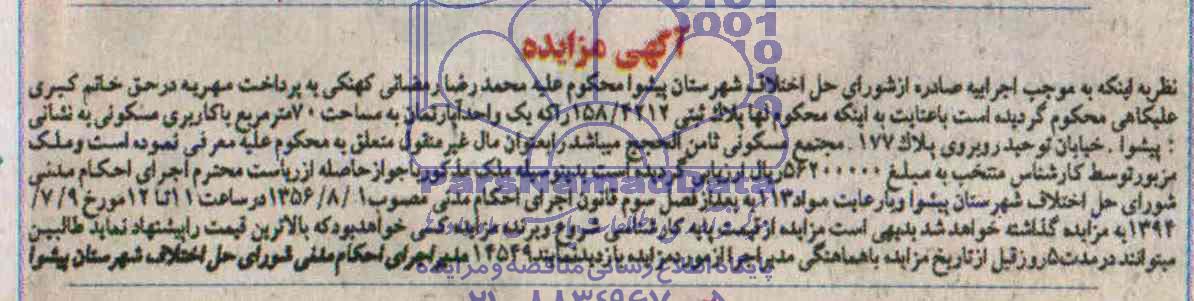 آگهی مزایده
نظر به اینکه به موجب اجراییه صادره از شورای حل اختلاف شهرستان پیشوا محکوم علیه محمد رضا رمضانی کهنکی به پرداخت مهریه در حق خانم کبری
علیکاهی محکوم گردیده است باعنایت به اینکه محکوم لها پلاک ثبتی ۱۵۸/۴۲۱۲ را که یک واحد آپارتمان به مساحت ۷۰متر مربع باکاربری مسکونی به نشانی
: پیشوا . خیابان توحید روبروی پلاک ۱۷۷ . مجتمع مسکونی ثامن الحجج میباشد رابعنوان مال غیر منقول متعلق به محکوم علیه معرفی نموده است وملک
مزبور توسط کارشناس منتخب به مبلغ ۵۶۲۰۰۰۰۰۰ریال ارزیابی گردیده است بدینوسیله ملک مذکور باجواز حاصله از ریاست محترم اجرای احکام مدنی
شورای حل اختلاف شهرستان پیشوا وبارعایت مواد۱۱۳به بعداز فصل سوم قانون اجرای احکام مدنی مصوب۱۳۵۶/۸/۱درساعت ۱۱تا ۱۲مورخ ۷/۹/
۱۳۹۴به مزایده گذاشته خواهد شد بدیهی است مزایده از قیمت پایه کارشناسی شروع وبرنده مزایده کسی خواهدبود که بالاترین قیمت راپیشنهاد نماید طالبین
میتوانند در مدت ۵روز قبل از تاریخ مزایده باهماهنگی مدیر اجرا از مورد مزایده بازدید نمایند ۱۴۵۴۹ مدیر اجرای احکام مدنی شورای حل اختلاف شهرستان پیشوا
ParsNamadData
پایگاه اطلاع رسانی مناقصه و مزایده